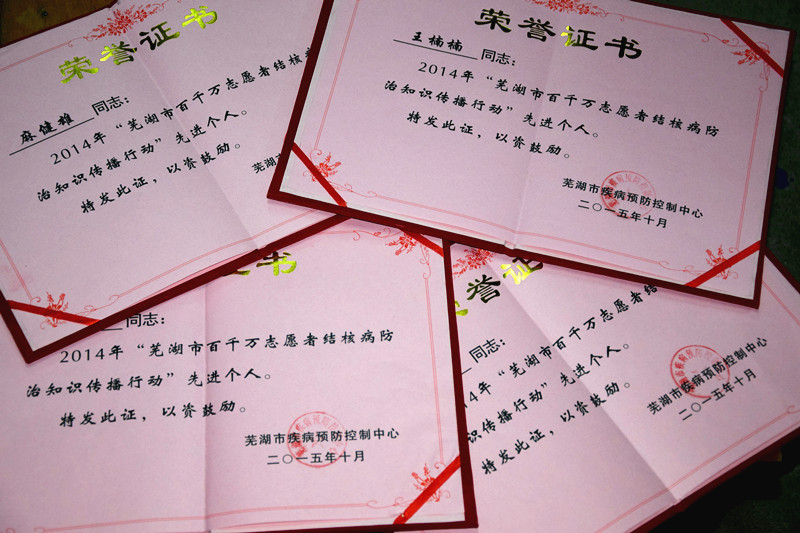 荣誉证书
麻健雄同志：
2014年“芜湖市百千万志愿者结核
治知识传播行动”先进个人。
特发此证，以资鼓励。
芜湖
荣誉证书
王楠楠同志：
2014年“芜湖市百千万志愿者结核病防
治知识传播行动”先进个人。
特发此证，以资鼓励。
芜湖市疾病预防控制中心
二〇一五年十月
证书
同志：
2014年“芜湖市百千万志愿者结核病防
治知识传播行动”先进个人。
特发此证，以资鼓励。
芜湖市疾病预防控制中心
二〇一五年十月
誉证
同志：
4年“芜湖市百千万志愿者结
识传播行动”先进个人。
特发此证，以资鼓励。
芜湖市疾病预防控制中心
二〇一五年十月